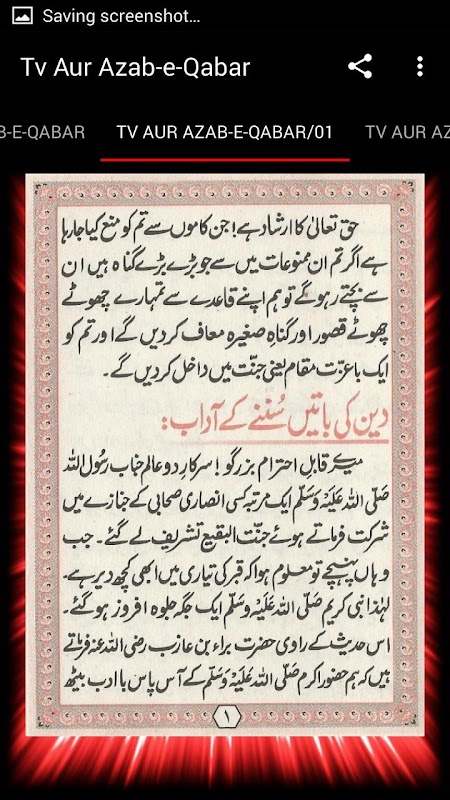 Saving screenshot...
Tv Aur Azab-e-Qabar
B-E-QABAR TV AUR AZAB-E-QABAR/01 TV AUR AZ
حق تعالیٰ کا ارشاد ہے! جن کاموں سے تم کو منع کیا جا رہا
ہے اگر تم ان ممنوعات میں سے جو بڑے بڑے گناہ ہیں ان
سے بچتے رہو گے تو ہم اپنے قاعدے سے تمہارے چھوٹے
چھوٹے قصور اور گناہِ صغیرہ معاف کردیں گے اور تم کو
ایک باعزّت مقام یعنی جنّت میں داخل کردیں گے۔
دین کی باتیں سُننے کے آداب:
میرے قابل احترام بزرگو! سرکارِ دو عالم جناب رسُول اللہ
صَلَّی اللہُ عَلَیْہِ وَسَلَّم ایک مرتبہ کسی انصاری صحابی کے جنازے میں
شرکت فرماتے ہوئے جنّت البقیع تشریف لے گئے۔ جب
وہاں پہنچے تو معلوم ہوا کہ قبر کی تیاری میں ابھی کچھ دیر ہے۔
لہٰذا نبی کریم صَلَّی اللہُ عَلَیْہِ وَسَلَّم ایک جگہ جلوہ افروز ہو گئے۔
اس حدیث کے راوی حضرت براء بن عازب رضی اللہ عنہ فرماتے
ہیں کہ ہم حضور اکرم صَلَّی اللہُ عَلَیْہِ وَسَلَّم کے آس پاس باادب بیٹھ
۱